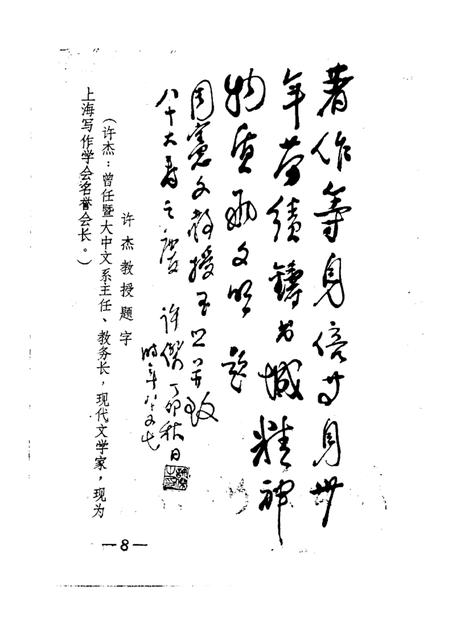 著作等身身卅
年劳绩铸书城精神
物质文明 题
周憲文教授并致
八十大寿之庆 许傑 丁卯秋日
时年八十又七
许杰教授题字
（许杰：曾任暨大中文系主任、教务长，现代文学家，现为
上海写作学会名誉会长。）
—8—